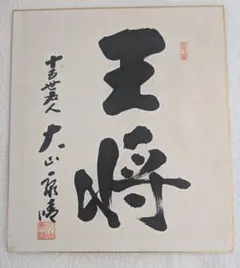 王将
十五世名人
大山康晴